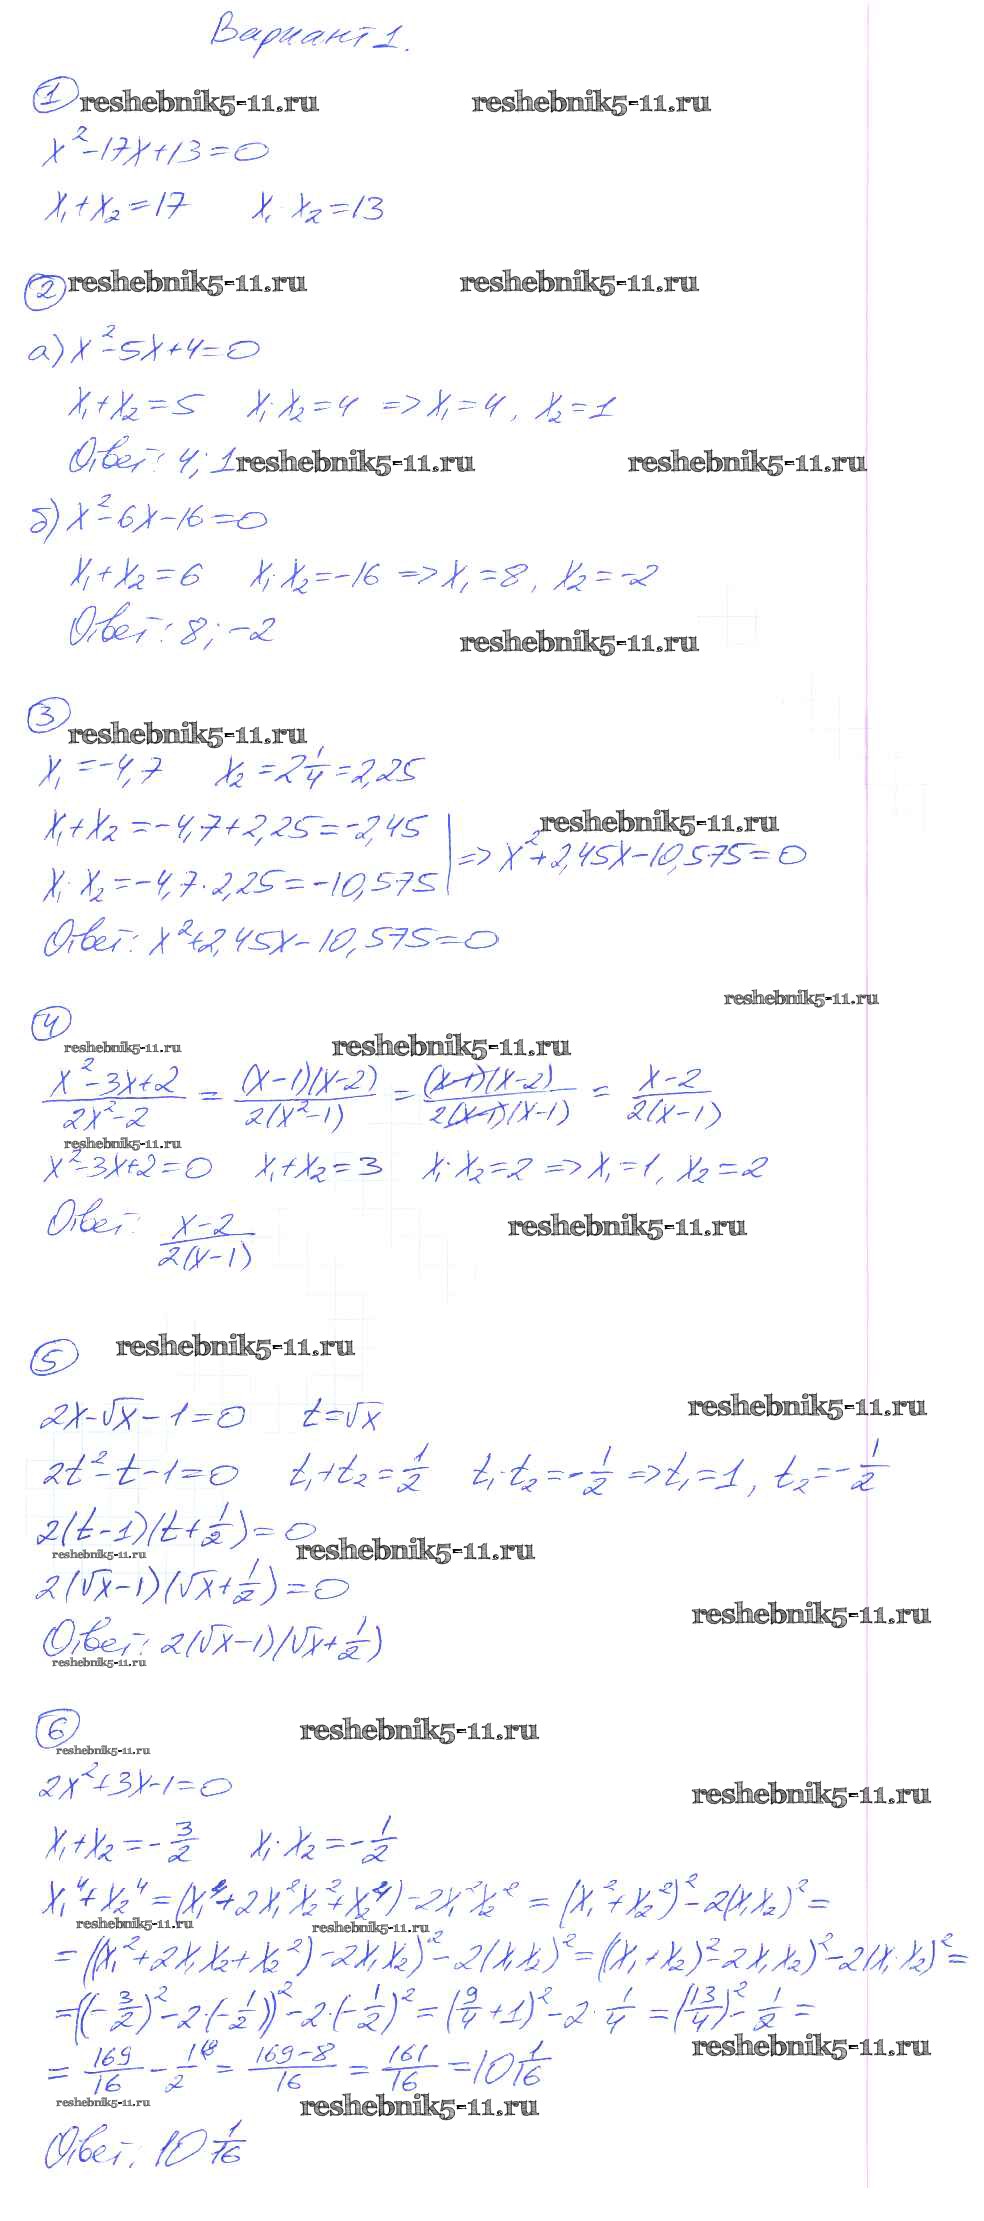 Вариант 1.
① reshebnik5-11.ru reshebnik5-11.ru
x²-17x+13=0
x₁+x₂=17 x₁·x₂=13
② reshebnik5-11.ru reshebnik5-11.ru
а) x²-5x+4=0
x₁+x₂=5 x₁·x₂=4 => x₁=4, x₂=1
Ответ: 4; 1 reshebnik5-11.ru reshebnik5-11.ru
б) x²-6x-16=0
x₁+x₂=6 x₁·x₂=-16 => x₁=8, x₂=-2
Ответ: 8; -2 reshebnik5-11.ru
③ reshebnik5-11.ru
x₁=-4,7 x₂=2 1/4=2,25
x₁+x₂=-4,7+2,25=-2,45 reshebnik5-11.ru
=> x²+2,45x-10,575=0
x₁·x₂=-4,7·2,25=-10,575
Ответ: x²+2,45x-10,575=0
reshebnik5-11.ru
④
reshebnik5-11.ru reshebnik5-11.ru
(x²-3x+2)/(2x²-2) = ((x-1)(x-2))/(2(x²-1)) = ((x-1)(x-2))/(2(x-1)(x-1)) = (x-2)/(2(x-1))
reshebnik5-11.ru
x²-3x+2=0 x₁+x₂=3 x₁·x₂=2 => x₁=1, x₂=2
Ответ: (x-2)/(2(x-1)) reshebnik5-11.ru
⑤ reshebnik5-11.ru
2x-√x-1=0 t=√x reshebnik5-11.ru
2t²-t-1=0 t₁+t₂=1/2 t₁·t₂=-1/2 => t₁=1, t₂=-1/2
2(t-1)(t+1/2)=0
reshebnik5-11.ru reshebnik5-11.ru
2(√x-1)(√x+1/2)=0
reshebnik5-11.ru
Ответ: 2(√x-1)(√x+1/2)
reshebnik5-11.ru
⑥ reshebnik5-11.ru
reshebnik5-11.ru
2x²+3x-1=0 reshebnik5-11.ru
x₁+x₂=-3/2 x₁·x₂=-1/2
x₁⁴+x₂⁴=(x₁⁴+2x₁²x₂²+x₂⁴)-2x₁²x₂²=(x₁²+x₂²)²-2(x₁x₂)²=
reshebnik5-11.ru reshebnik5-11.ru
=((x₁²+2x₁x₂+x₂²)-2x₁x₂)²-2(x₁x₂)²=((x₁+x₂)²-2x₁x₂)²-2(x₁·x₂)²=
=((-3/2)²-2·(-1/2))²-2·(-1/2)²=(9/4+1)²-2·1/4=(13/4)²-1/2=
reshebnik5-11.ru
=169/16-1/2 ⁸=(169-8)/16=161/16=10 1/16
reshebnik5-11.ru reshebnik5-11.ru
Ответ: 10 1/16